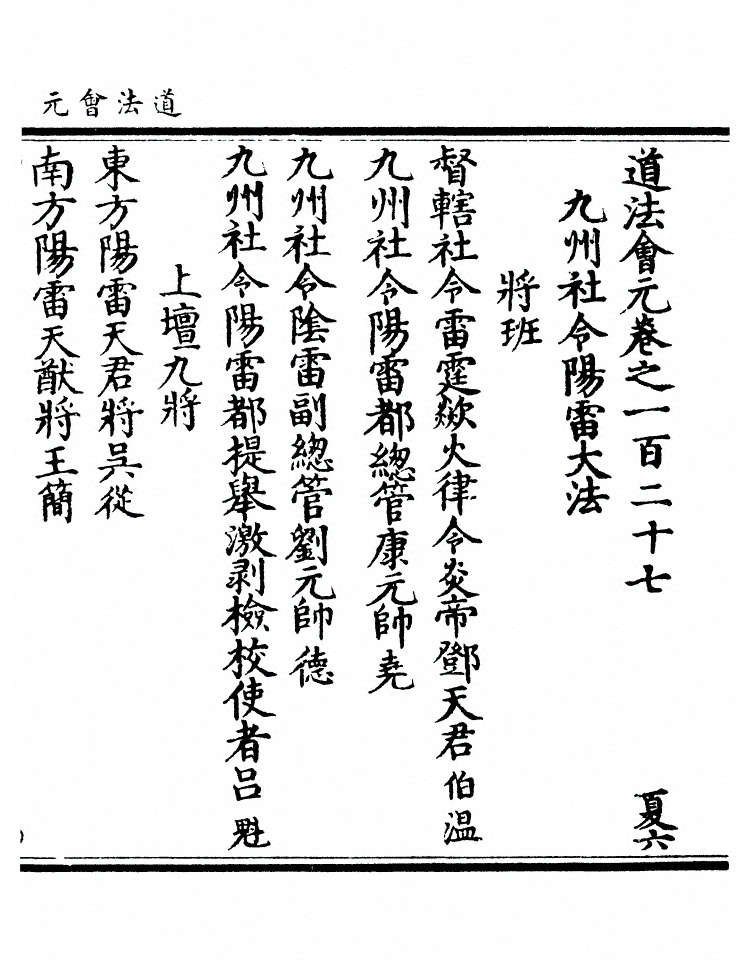 道法會元
道法會元卷之一百二十七 夏六
九州社令陽雷大法
將班
督轄社令雷霆欻火律令炎帝鄧天君伯温
九州社令陽雷都總管康元帥堯
九州社令陰雷副總管劉元帥德
九州社令陽雷都提舉激剥檢校使者吕魁
上壇九將
東方陽雷天君將吴從
南方陽雷天猷將王簡